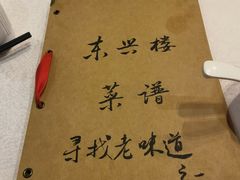 东兴楼
菜谱
寻找老味道
之一